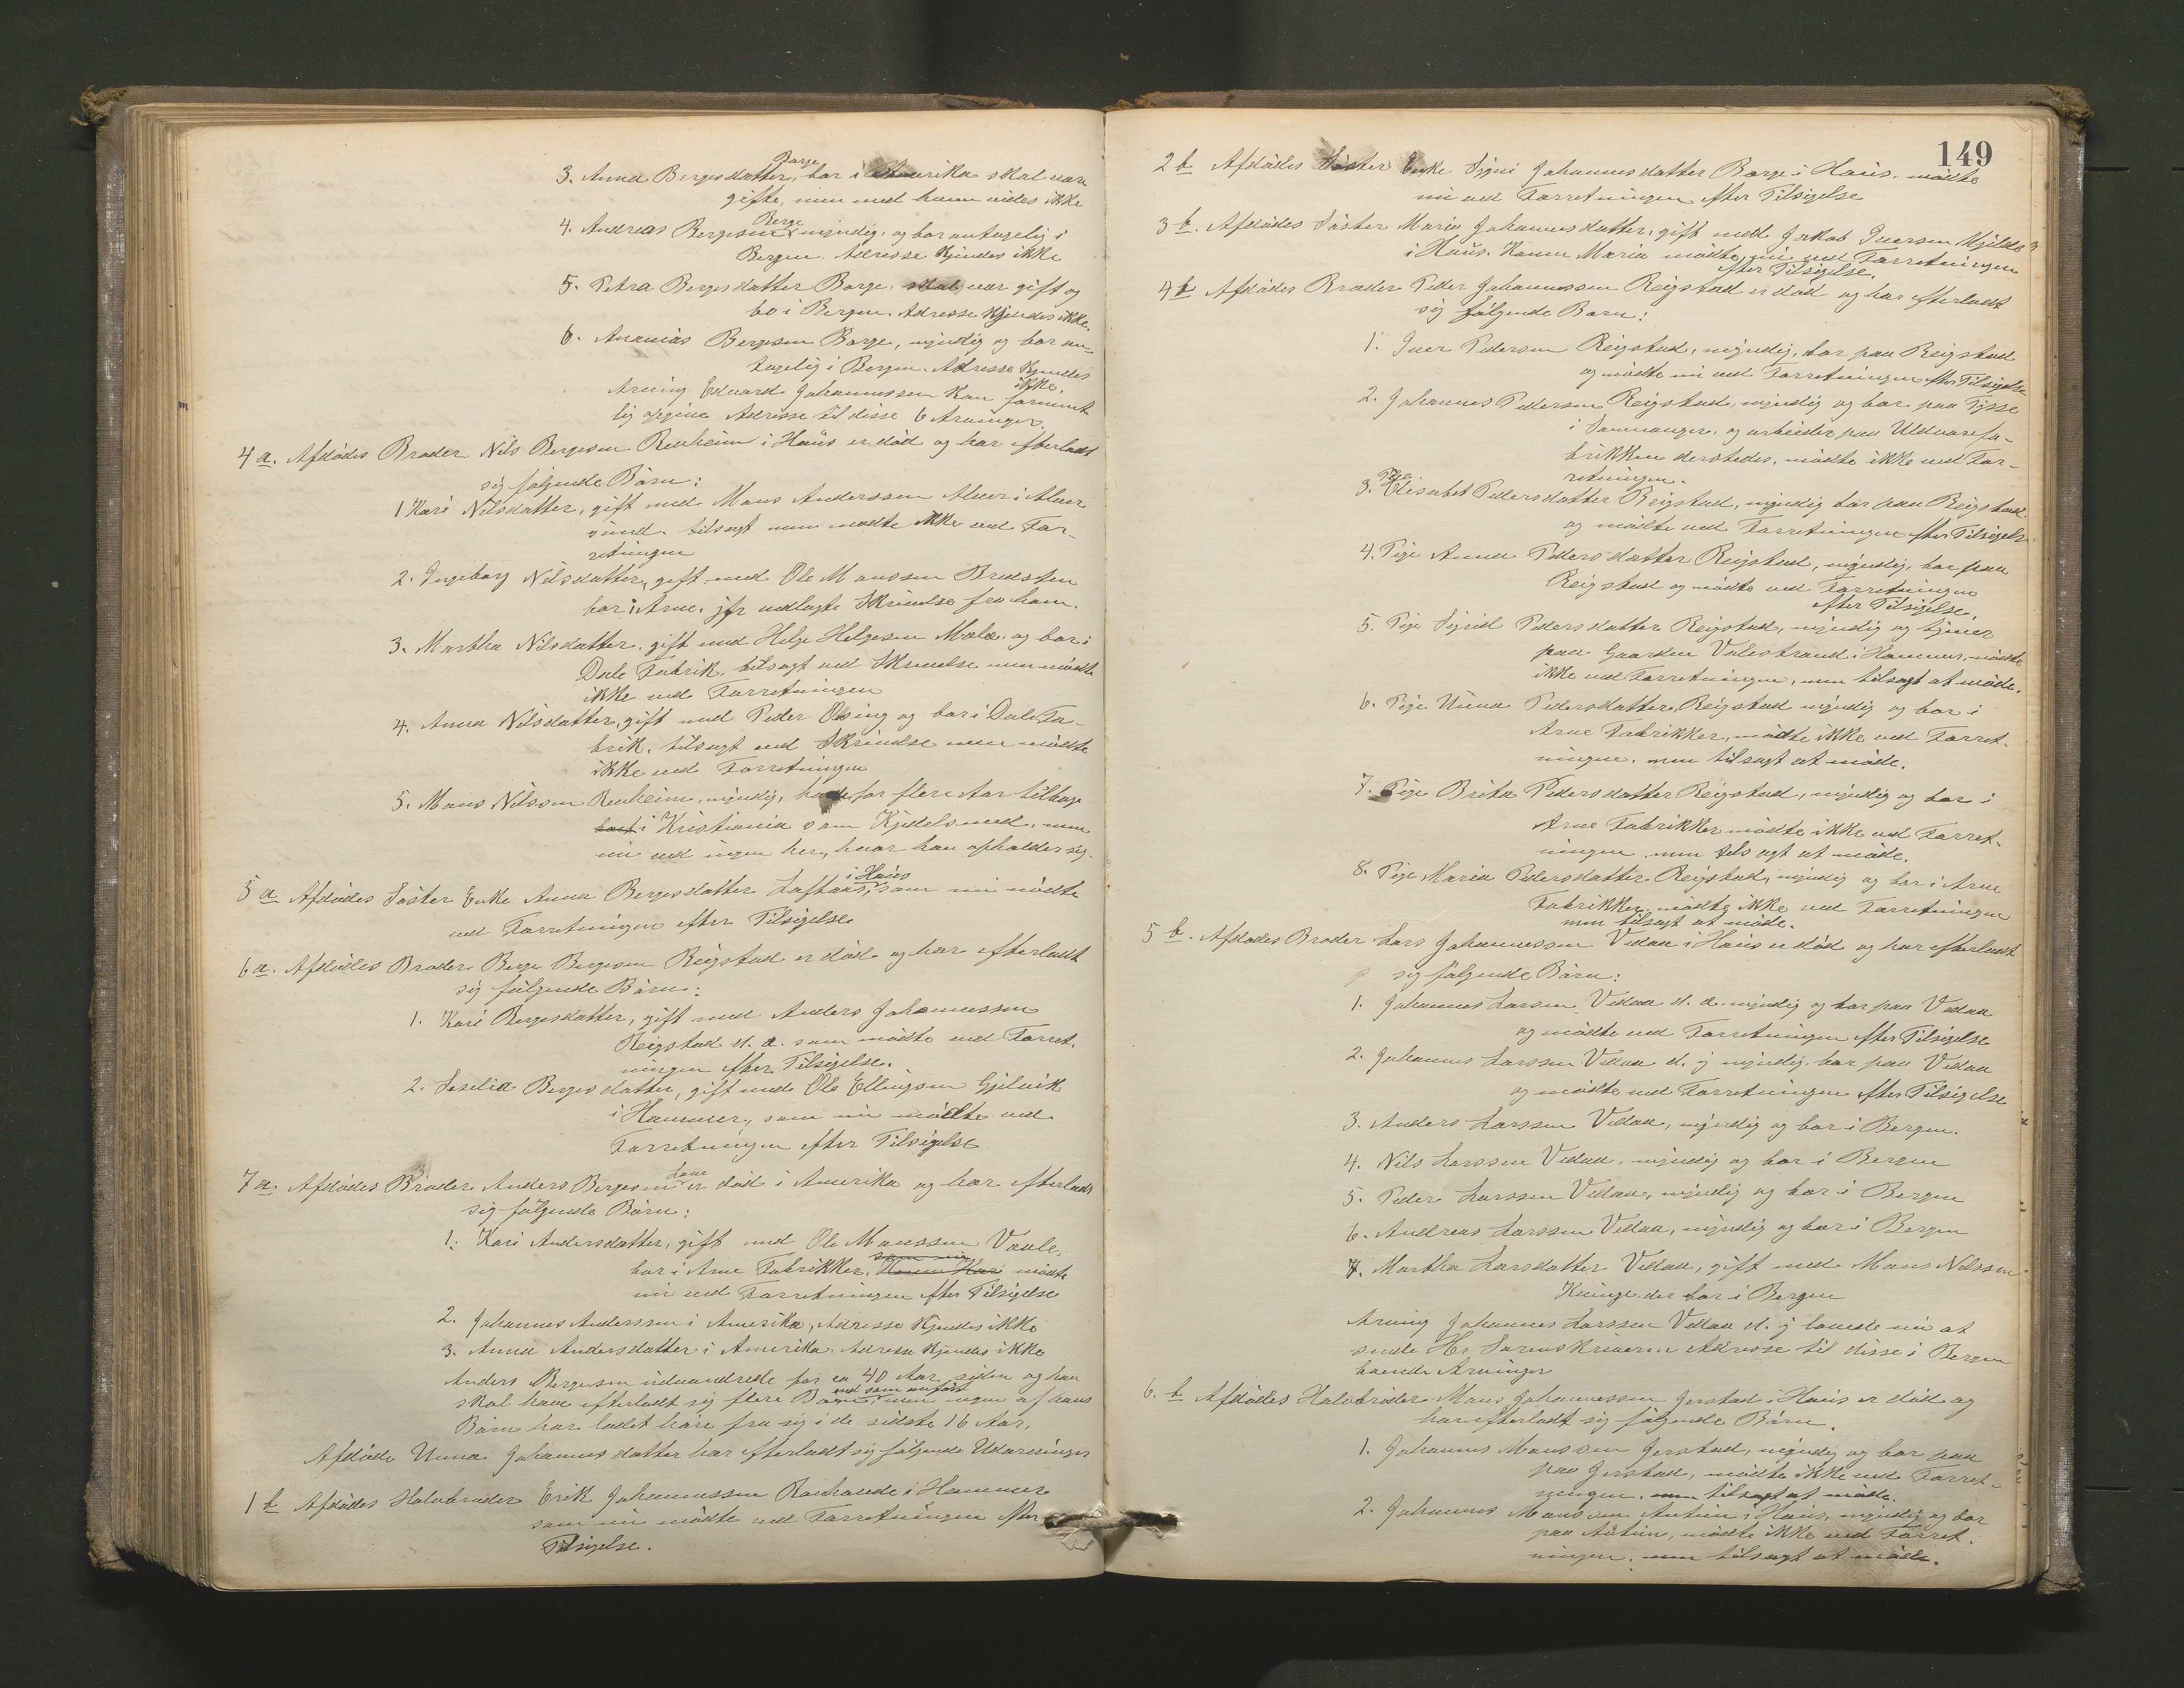 Borge
3. Anna Bergesdatter, bor i Amerika skal være
gifte, men med hvem vides ikke
Berge
4. Andreas Bergesen myndig, og bor antagelig i
Bergen. Adresse kjendes ikke
5. Petra Bergesdatter Borge, skal være gift og
bo i Bergen. Adresse kjendes ikke.
6. Ananias Bergesen Borge, myndig og bor an-
tagelig i Bergen. Adresse kjendes
ikke.
Arving Edvard Johannessen kan forment-
lig opgive Adresse til disse 6 Arvinger.
4 a. Afdødes Broder Nils Bergesen Renheim i Haus er død og har efterladt
sig følgende Børn:
1 Kari Nilsdatter, gift med Mons Anderssen Alver i Alver
sund. tilsagt men mødte ikke ved For-
retningen
2. Ingeborg Nilsdatter, gift med Ole Monssen
bor i Arne. jfr vedlagte Skrivelse fra ham.
3. Martha Nilsdatter, gift med Helge Helgesen Mæle. og bor i
Dale Fabrik. tilsagt ved Skrivelse men mødte
ikke ved Forretningen
4. Anna Nilsdatter, gift med Peder og bor i Dale Fa-
brik. tilsagt ved Skrivelse men mødte
ikke ved Forretningen
5. Mons Nilssen Renheim, myndig, for flere Aar tilbage
boet i Kristiania som Kjedelsmed, men
nu ved ingen her, hvor han opholder sig.
i Haus
5 a Afdødes Søster Enke Anna Bergesdatter Loftaas, som nu mødte
ved Forretningen efter Tilsigelse
6 a. Afdødes Broder Berge Bergesen Reigstad er død og har efterladt
sig følgende Børn:
1. Kari Bergesdatter, gift med Anders Johannessen
Reigstad d. æ. som mødte ved Forret-
ningen efter Tilsigelse.
2. Seselia Bergesdatter, gift med Ole Ellingsen Gjelvik
i Hammer, som nu mødte ved
Forretningen efter Tilsigelse
7 a. Afdødes Broder Anders Bergesen er død i Amerika og har efterladt
sig følgende Børn:
1. Kari Andersdatter, gift med Ole Monssen Vaule,
som nu
bor i Arne Fabrikker. Hun Kari mødte
nu ved Forretningen efter Tilsigelse
2. Johannes Anderssen i Amerika, Adresse kjendes ikke
3. Anna Andersdatter i Amerika. Adresse kjendes ikke
Anders Bergesen udvandrede for ca 40 Aar siden og han
end som anført
skal have efterladt sig flere Børn, men ingen af hans
Børn har ladet høre fra sig i de sidste 16 Aar.
Afdøde Unna Johannesdatter har efterladt sig følgende Udarvinger
1 b Afdødes Halvbroder Erik Johannessen i Hammer
som nu mødte ved Forretningen efter
Tilsigelse.
149
2 b Afdødes Søster Enke Signi Johannesdatter Borge i Haus. mødte
nu ved Forretningen efter Tilsigelse
3 b. Afdødes Søster Maria Johannesdatter, gift med Jakob Iversen Mjelde
i Haus. Konen Maria mødte nu ved Forretningen
efter Tilsigelse.
4 b Afdødes Broder Peder Johannessen Reigstad er død og har efterladt
sig følgende Børn:
1. Iver Pedersen Reigstad, myndig, bor paa Reigstad
og mødte nu ved Forretningen efter Tilsigelse
2. Johannes Pedersen Reigstad, myndig og bor paa Tysse
i Samnanger, og arbeider paa Uldvarefa-
brikken dersteds, mødte ikke ved For-
retningen.
Pige
3. Elisabet Pedersdatter Reigstad, myndig bor paa Reigstad
og mødte ved Forretningen efter Tilsigelse
4. Pige Anna Pedersdatter Reigstad, myndig, bor paa
Reigstad og mødte ved Forretningen
efter Tilsigelse.
5. Pige Sigrid Pedersdatter Reigstad, myndig og tjener
paa Gaarden Valestrand i Hammer, mødte
ikke ved Forretningen, men tilsagt at møde.
6. Pige Unna Pedersdatter Reigstad myndig og bor i
Arne Fabrikker, mødte ikke ved Forret-
ningen. men tilsagt at møde.
7. Pige Brita Pedersdatter Reigstad, myndig og bor i
Arne Fabrikker mødte ikke ved Forret-
ningen, men tilsagt at møde.
8. Pige Maria Pedersdatter Reigstad, myndig og bor i Arne
Fabrikker, mødte ikke ved Forretningen
men tilsagt at møde.
5 b. Afdødes Broder Lars Johannessen Vidaa i Haus er død og har efterladt
sig følgende Børn:
1. Johannes Larssen Vidaa d. æ. myndig og bor paa Vidaa
og mødte ved Forretningen efter Tilsigelse
2. Johannes Larssen Vidaa d. y myndig, bor paa Vidaa
og mødte ved Forretningen efter Tilsigelse
3. Anders Larssen Vidaa, myndig og bor i Bergen.
4. Nils Larssen Vidaa, myndig og bor i Bergen
5. Peder Larssen Vidaa, myndig og bor i Bergen
6. Andreas Larssen Vidaa, myndig og bor i Bergen
7. Martha Larsdatter Vidaa, gift med Mons Nilssen
der bor i Bergen
Arving Johannes Larssen Vidaa d. y lovede nu at
sende Hr. Sorenskriveren Adresse til disse i Bergen
boende Arvinger
6. b Afdødes Halvbroder Mons Johannessen Jerstad i Haus er død og
har efterladt sig følgende Børn.
1. Johannes Monssen Jerstad, myndig og bor paa
paa Jerstad, mødte ikke ved Forret-
ningen. men tilsagt at møde.
2. Johannes Monssen i Haus, myndig og bor
paa mødte ikke ved Forret-
ningen. men tilsagt at møde.